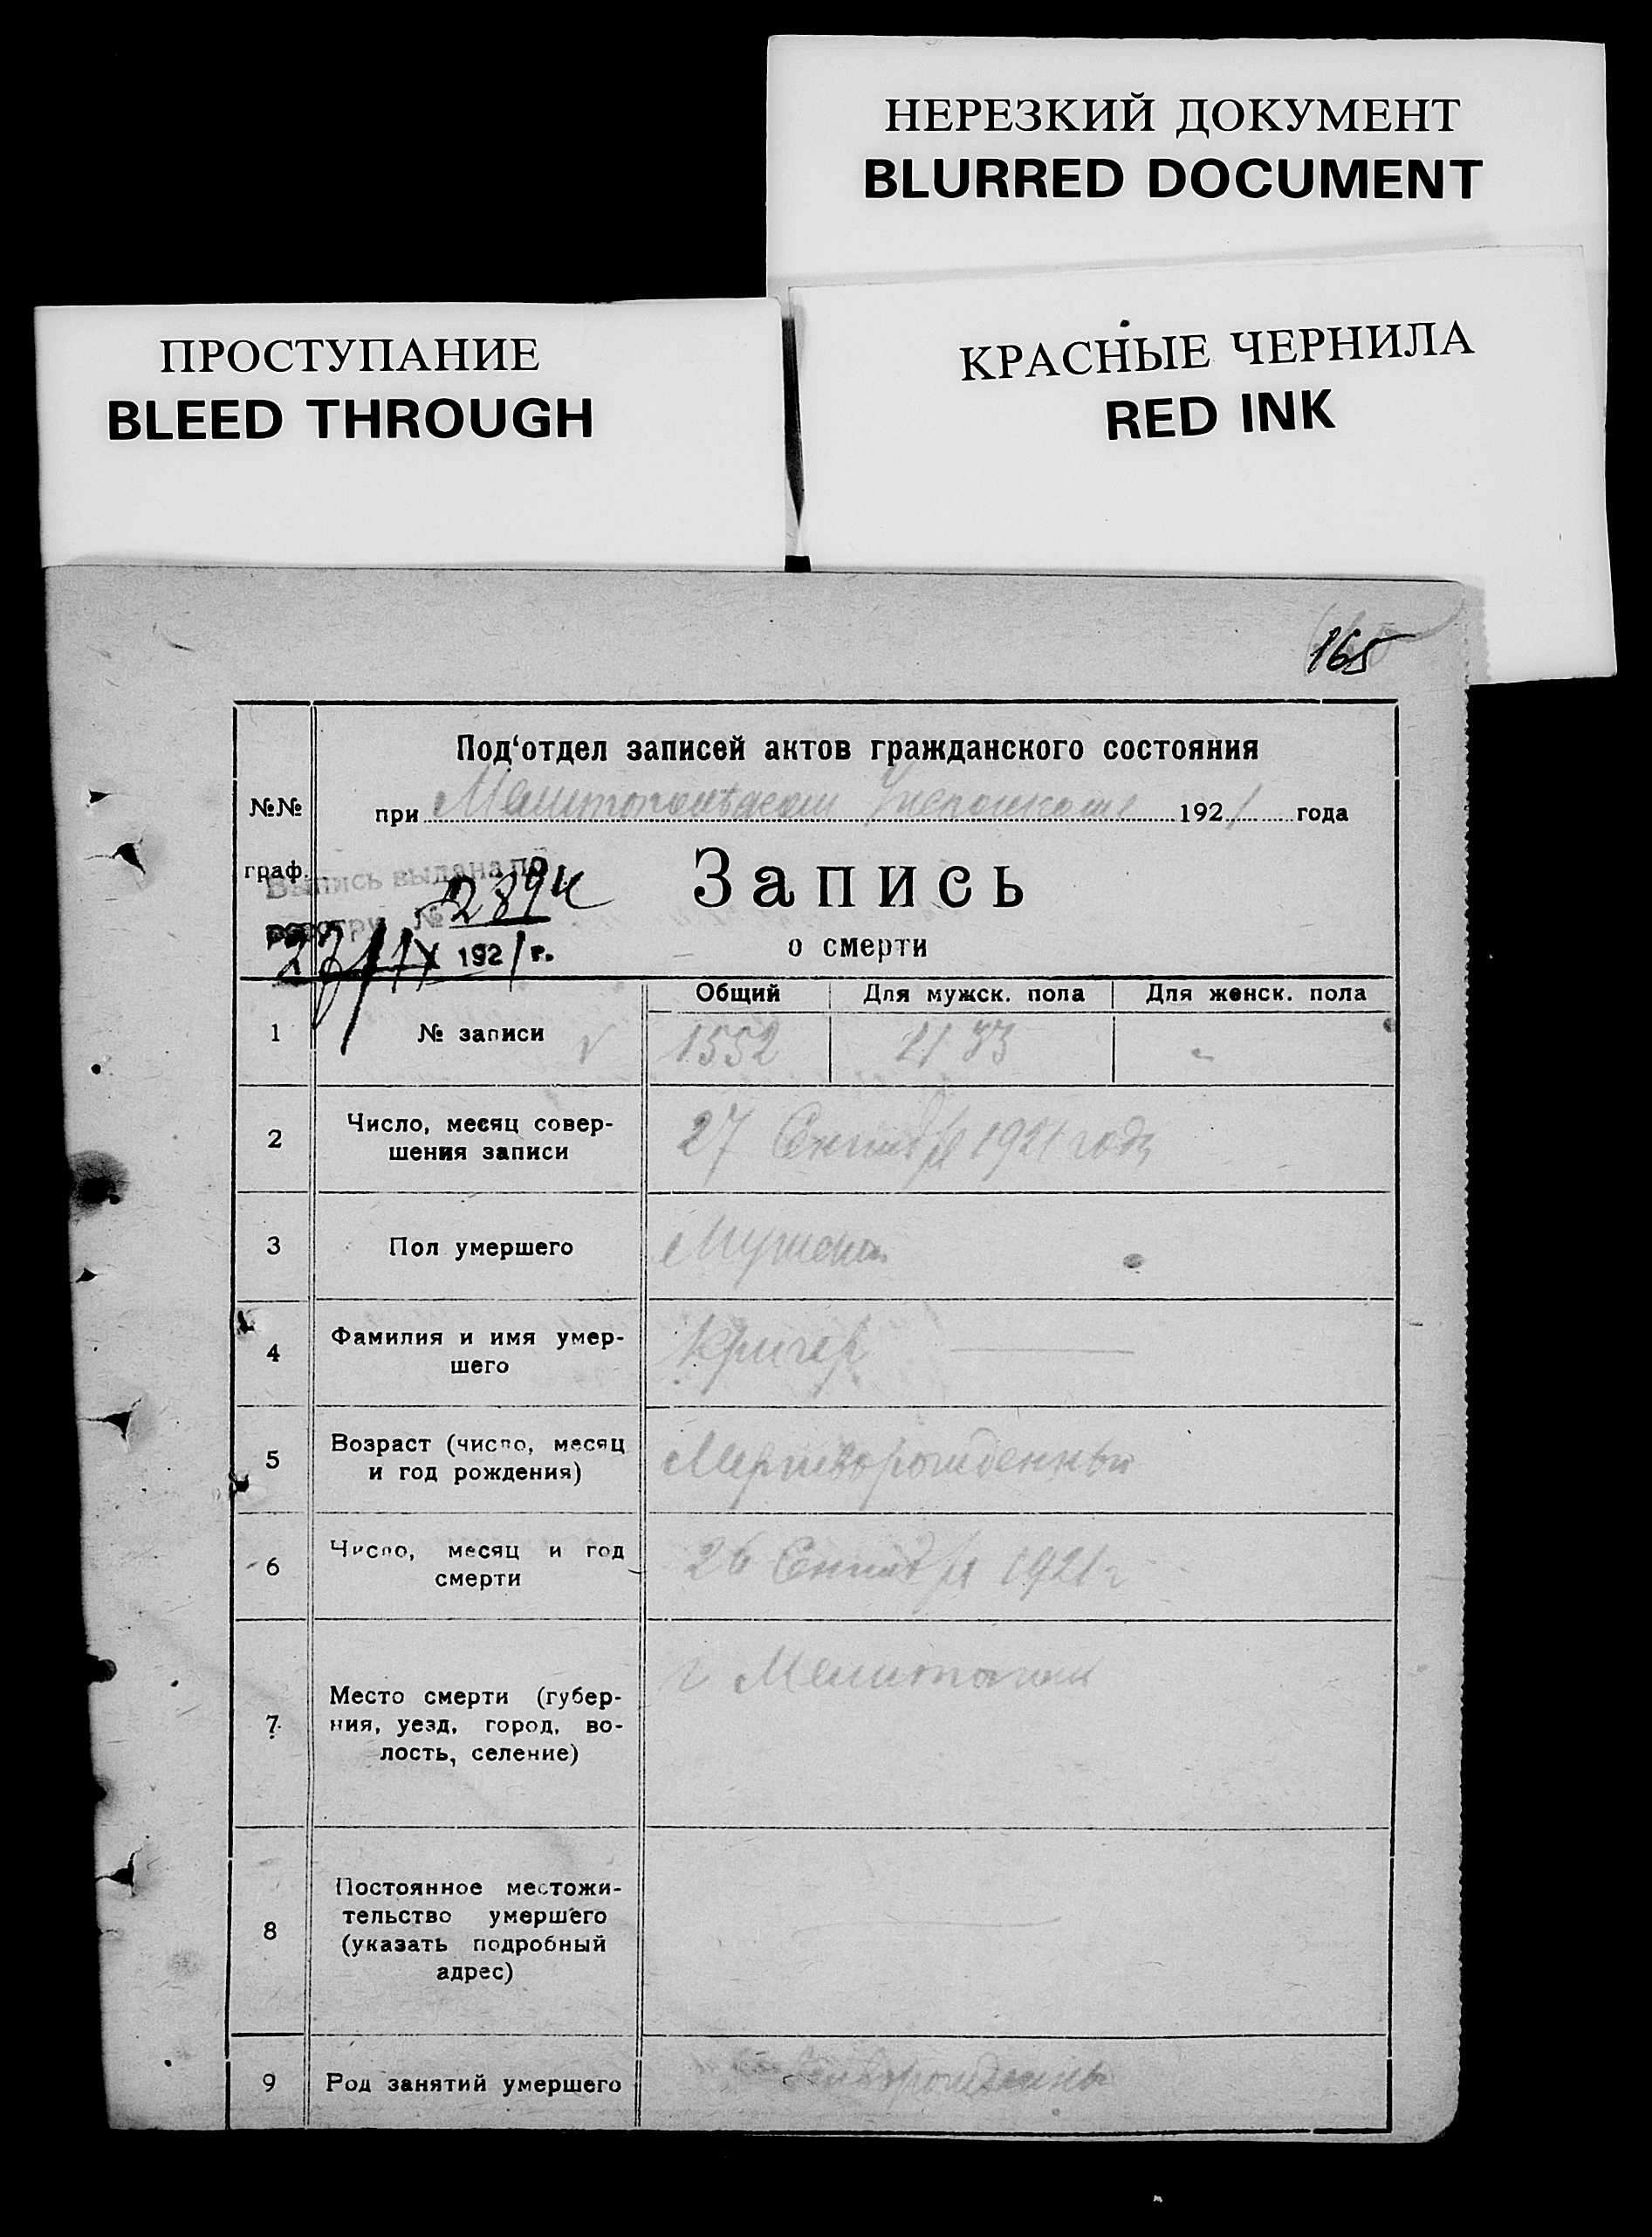 НЕРЕЗКИЙ ДОКУМЕНТ
BLURRED DOCUMENT
КРАСНЫЕ ЧЕРНИЛА
RED INK
ПРОСТУПАНИЕ
BLEED THROUGH
165
Под‘отдел записей актов гражданского состояния
№№
граф.
при 1921 года
Выпись выдана по
реестру № 2894
27/IX 1921 г.
Запись
о смерти
Общий Для мужск. пола Для женск. пола
1 № записи 1552
2 Число, месяц совер-
шения записи
27 1921 года
3 Пол умершего
4 Фамилия и имя умер-
шего
Кригер
5 Возраст (число, месяц
и год рождения)
Мертворожденный
6 Число, месяц и год
смерти
26 1921 г
7 Место смерти (губер-
ния, уезд, город, во-
лость, селение)
г Мелитополь
8 Постоянное местожи-
тельство умершего
(указать подробный
адрес)
9 Род занятий умершего